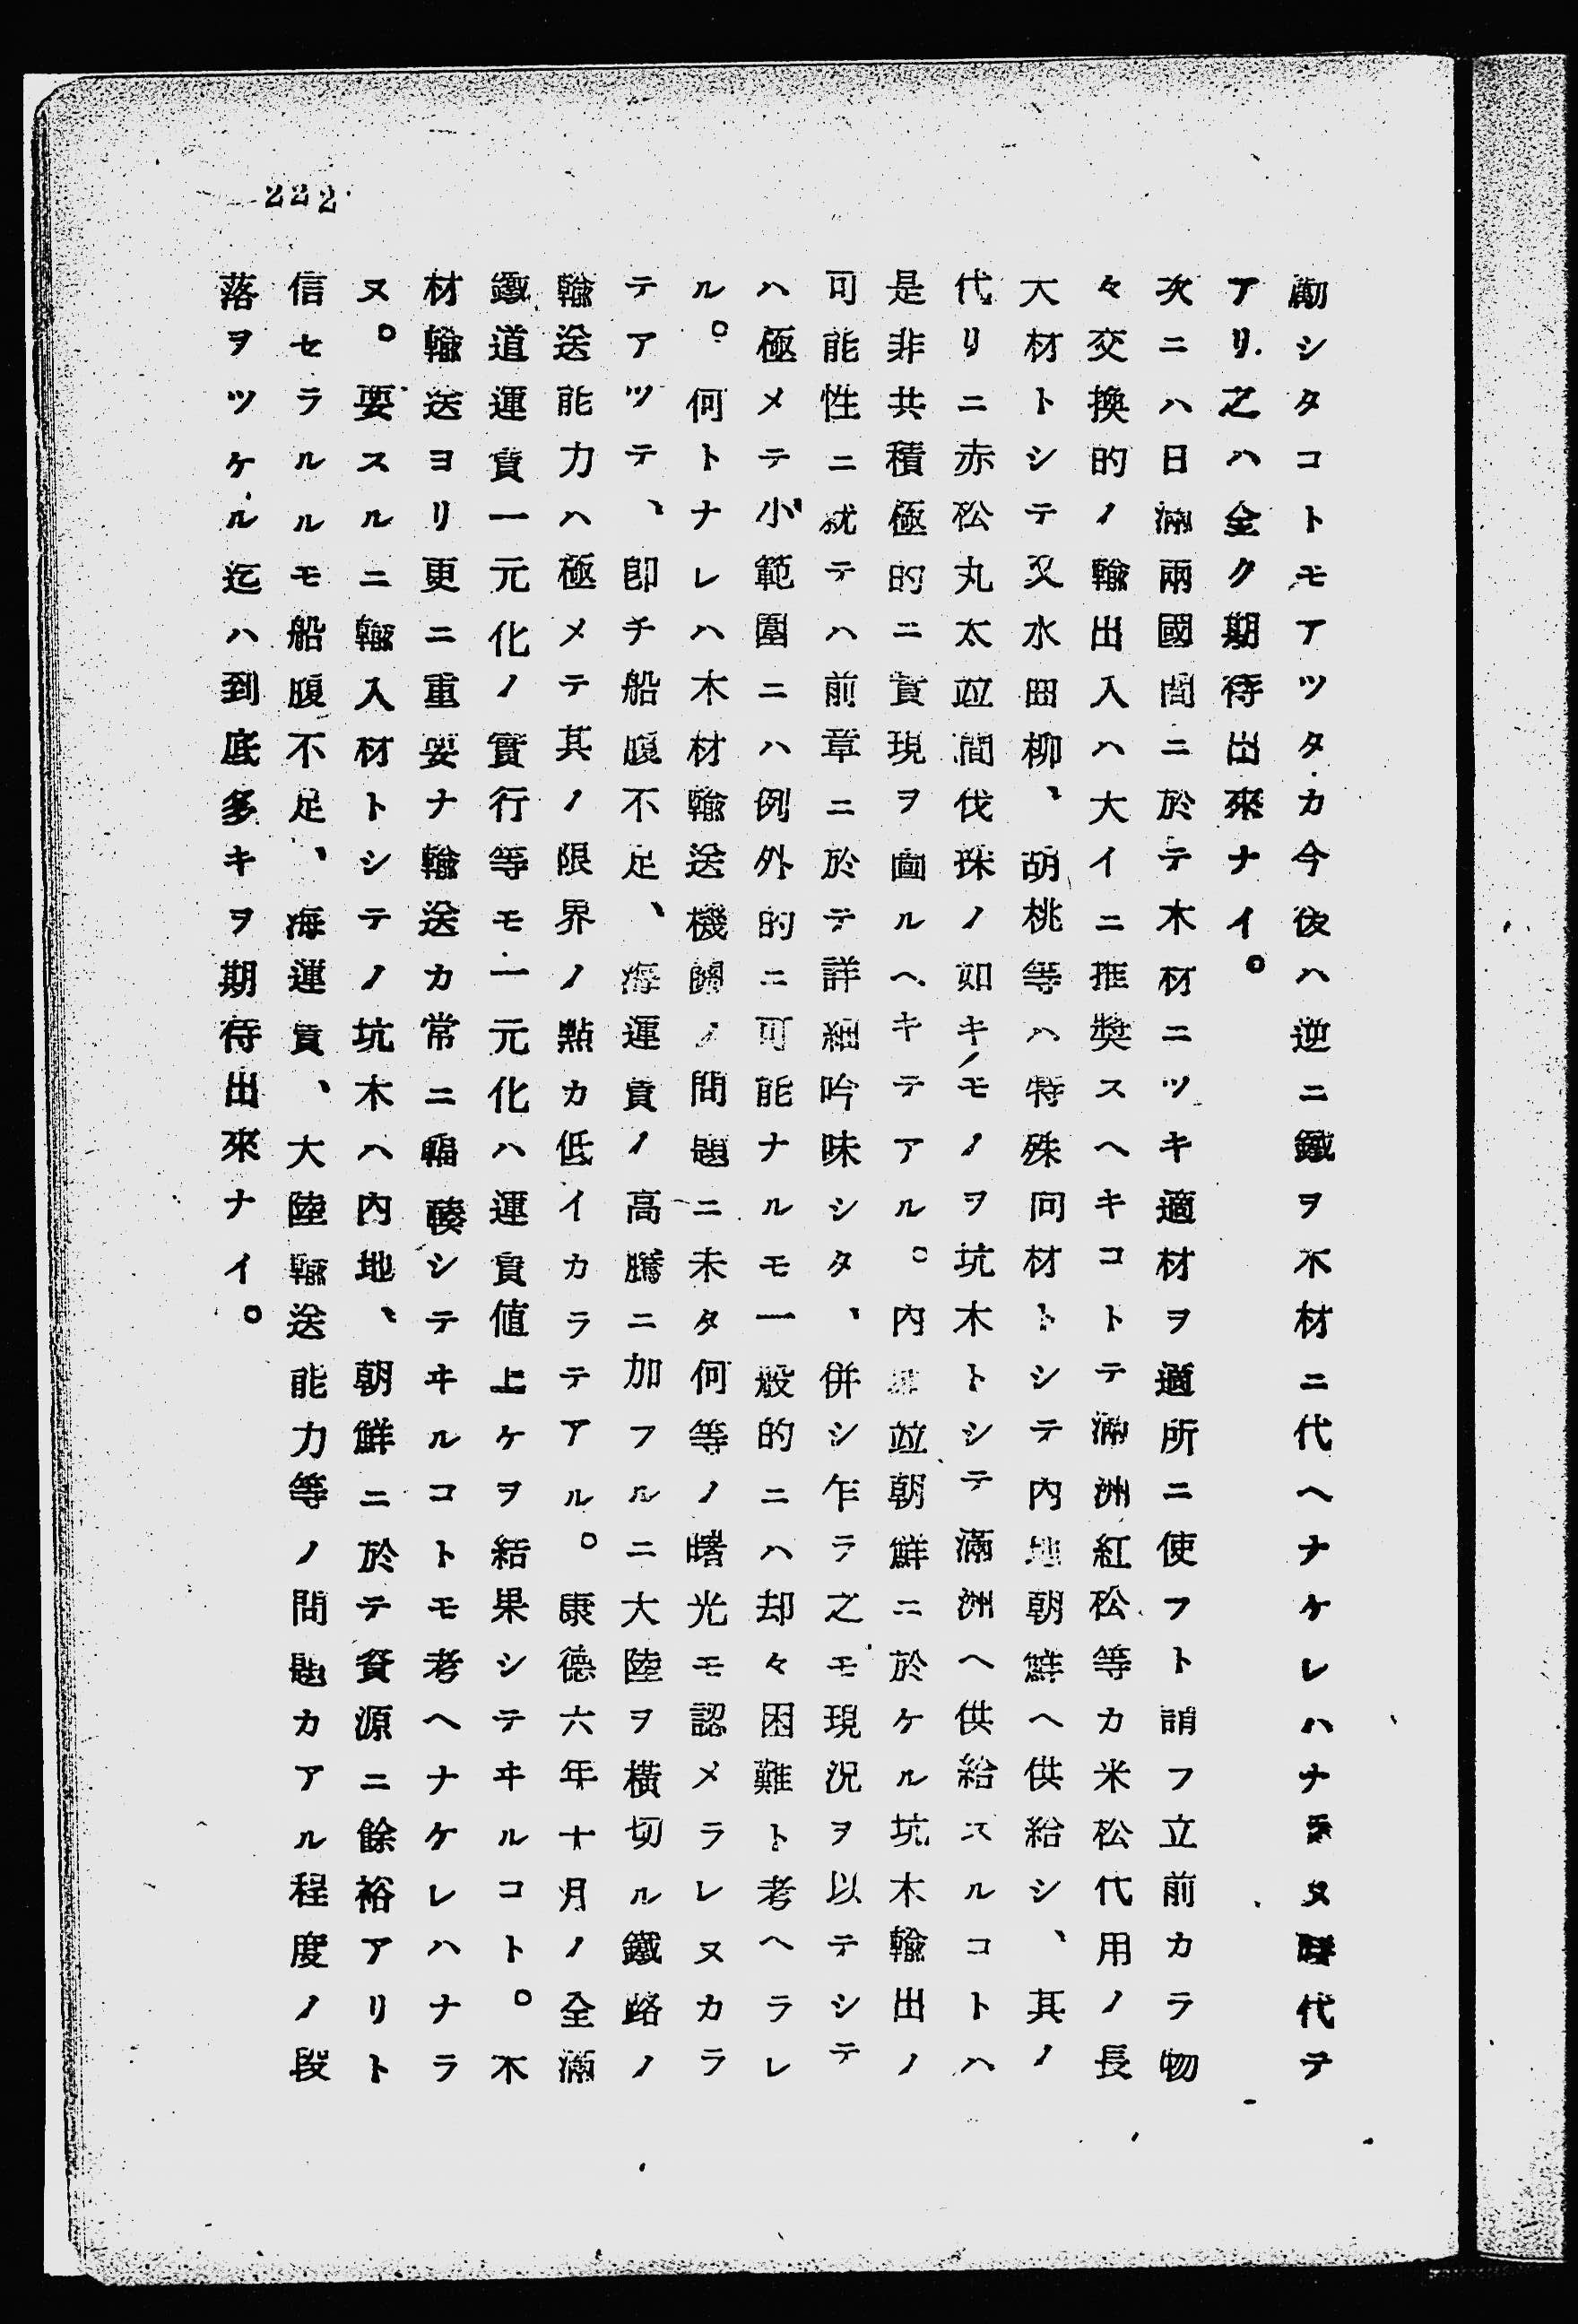 222
勵シタコトモアツタカ今後ハ逆ニ鐵ヲ木材ニ代ヘナケレハナラヌ時代テ
アリ之ハ全ク期待出來ナイ。
次ニハ日滿兩國間ニ於テ木材ニツキ適材ヲ適所ニ使フト謂フ立前カラ物
々交換的ノ輸出入ハ大イニ推奬スヘキコトテ滿洲紅松等カ米松代用ノ長
大材トシテ又水曲柳、胡桃等ハ特殊向材トシテ內地朝鮮ヘ供給シ、其ノ
代リニ赤松丸太竝間伐株ノ如キモノヲ坑木トシテ滿洲ヘ供給スルコトハ
是非共積極的ニ實現ヲ圖ルヘキテアル。內地竝朝鮮ニ於ケル坑木輸出ノ
可能性ニ就テハ前章ニ於テ詳細吟味シタ、併シ乍ラ之モ現況ヲ以テシテ
ハ極メテ小範圍ニハ例外的ニ可能ナルモ一般的ニハ却々困難ト考ヘラレ
ル。何トナレハ木材輸送機關ノ問題ニ未タ何等ノ曙光モ認メラレヌカラ
テアツテ、卽チ船腹不足、海運賃ノ高騰ニ加フルニ大陸ヲ橫切ル鐵路ノ
輸送能力ハ極メテ其ノ限界ノ點カ低イカラテアル。康德六年十月ノ全滿
鐵道運賃一元化ノ實行等モ一元化ハ運賃値上ケヲ結果シテヰルコト。木
材輸送ヨリ更ニ重要ナ輸送カ常ニ輻輳シテヰルコトモ考ヘナケレハナラ
ヌ。要スルニ輸入材トシテノ坑木ハ內地、朝鮮ニ於テ資源ニ餘裕アリト
信セラルルモ船腹不足、海運賃、大陸輸送能力等ノ問題カアル程度ノ段
落ヲツケル迄ハ到底多キヲ期待出來ナイ。